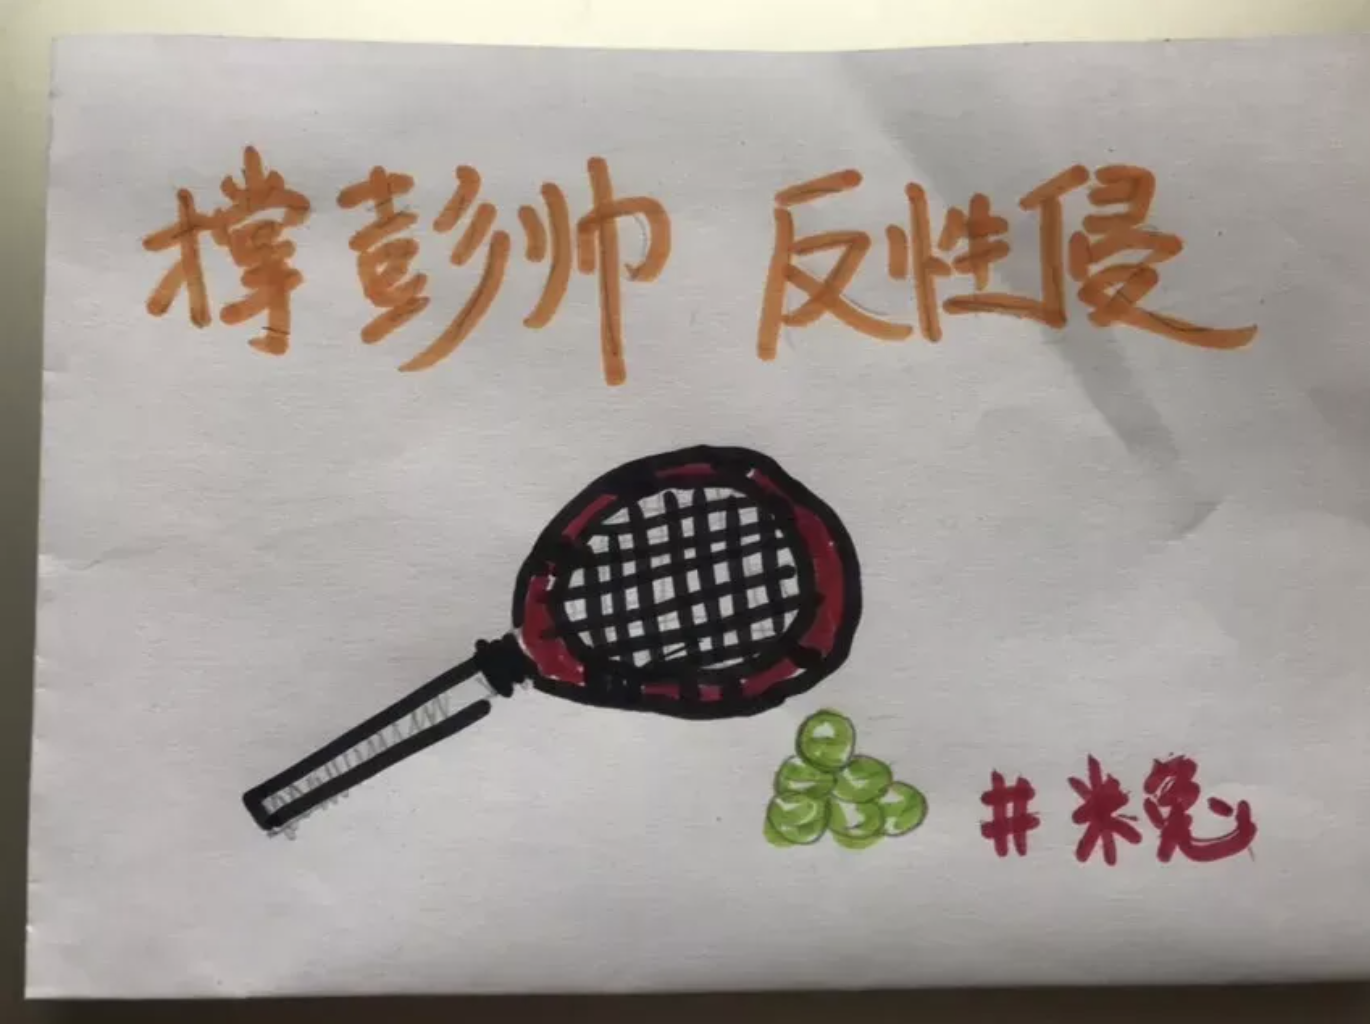 撑彭帅 反性侵
#米兔